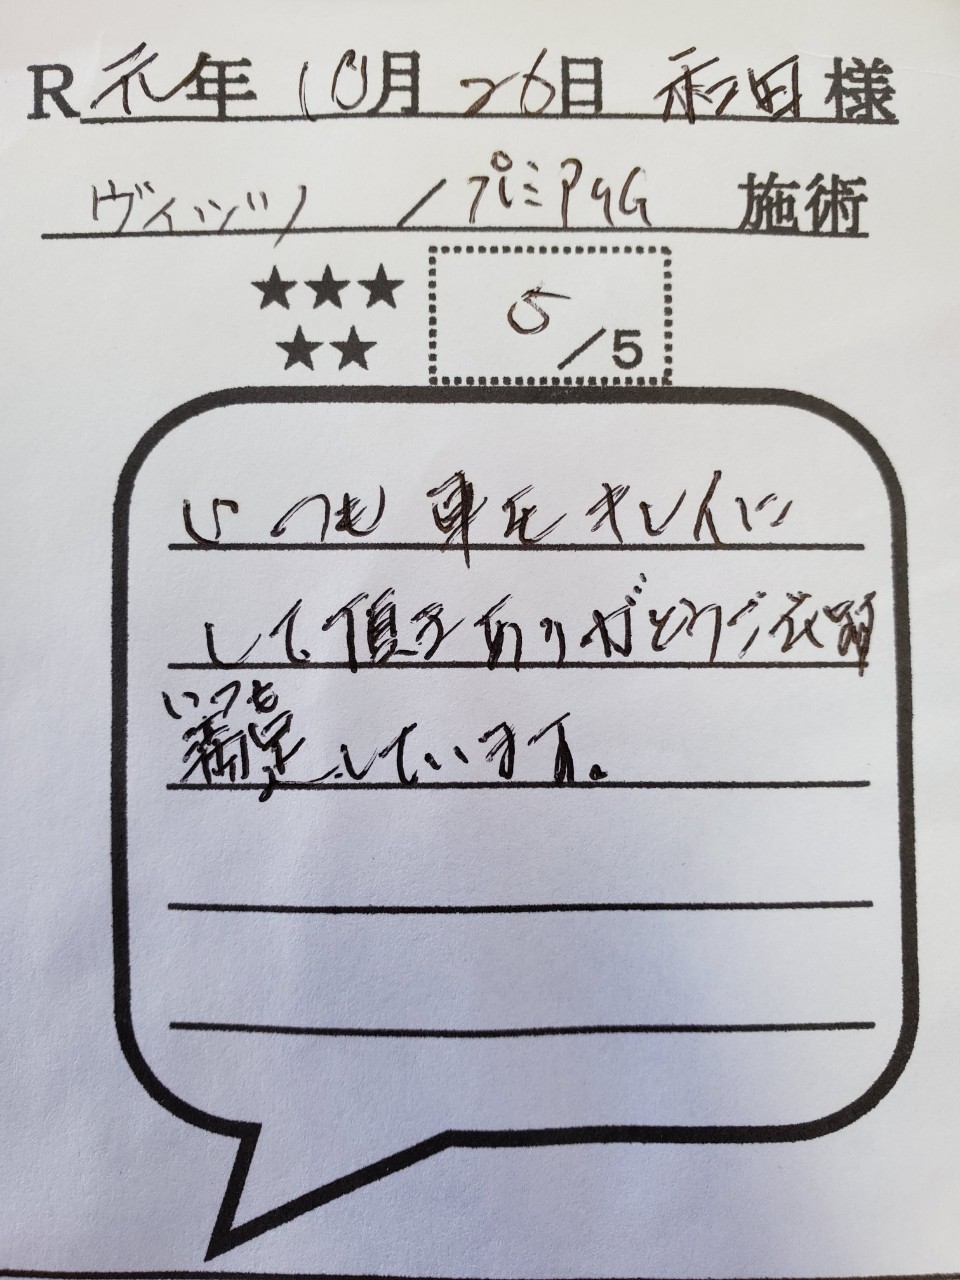 R元年 10月 26日 様
ヴィッツ / プレミアムG 施術
★★★
★★
5/5
いつも 車をキレイに
して頂きありがとうご
いつも
満足しています。